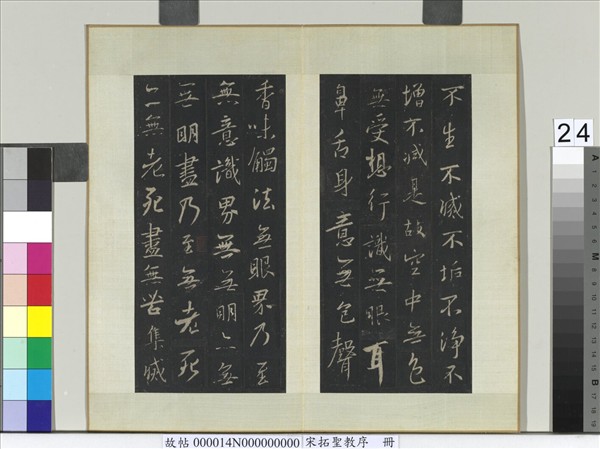 不生不滅不垢不淨不
增不減是故空中無色
無受想行識無眼耳
鼻舌身意無色聲
香味觸法無眼界乃至
無意識界無無明亦無
無明盡乃至無老死
亦無老死盡無苦集滅
24
A
M
B
故帖 000014N000000000 宋拓聖教序 冊